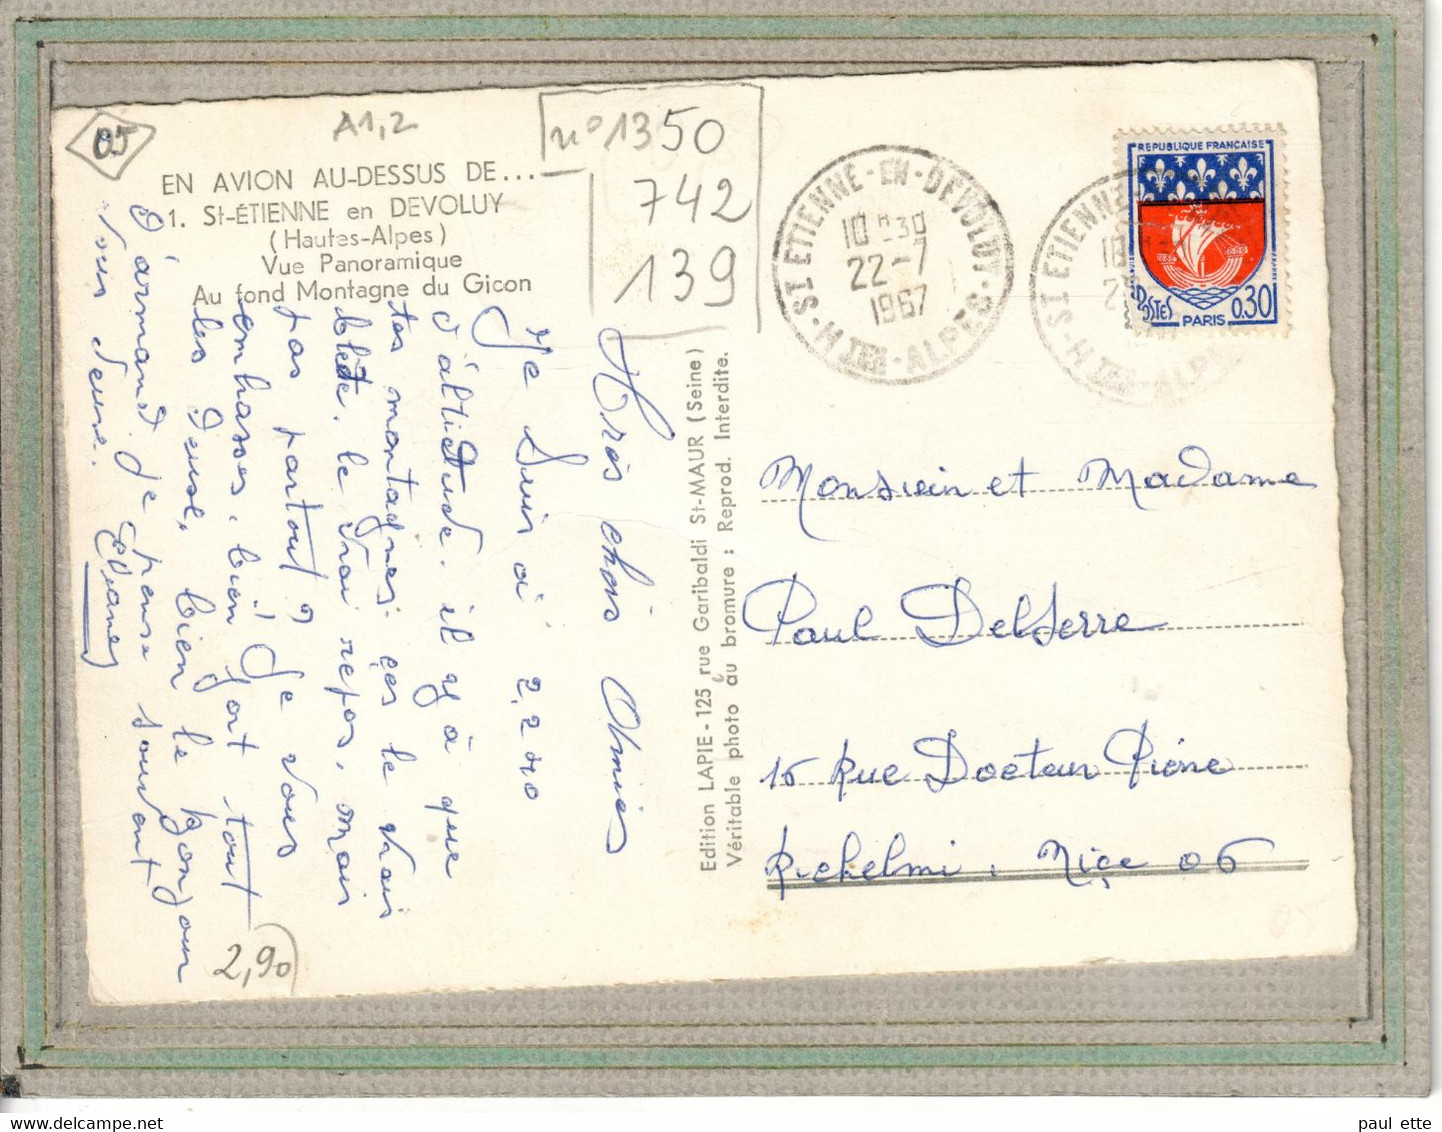 05
A1,2
n° 1350
742
139
EN AVION AU-DESSUS DE...
1. St-ÉTIENNE en DEVOLUY
(Hautes-Alpes)
Vue Panoramique
Au fond Montagne du Gicon
ST ETIENNE-EN-DEVOLUY
10 H30
22-7
1967
HTES-ALPES
ST ETIENNE
HTES-ALPE
REPUBLIQUE FRANÇAISE
POSTES
0.30
PARIS
Très chers Amies
Je suis à 2,200
d'altitude. il y à que
tes montagnes ces le vrais
blède, le vrai repos, mais
pas partout? Je vous
embrasses, bien fort tout
les deux, bien le bonjour
D'armand. je pense souvent
vous deux. Eliane
2,90
Edition LAPIE - 125, rue Garibaldi St-MAUR (Seine)
Véritable photo au bromure : Reprod. Interdite.
Monsieur et Madame
Paul Delserre
15 Rue Docteur Pierre
Richelmi, Niçe 06
www.delcampe.net
paul ette